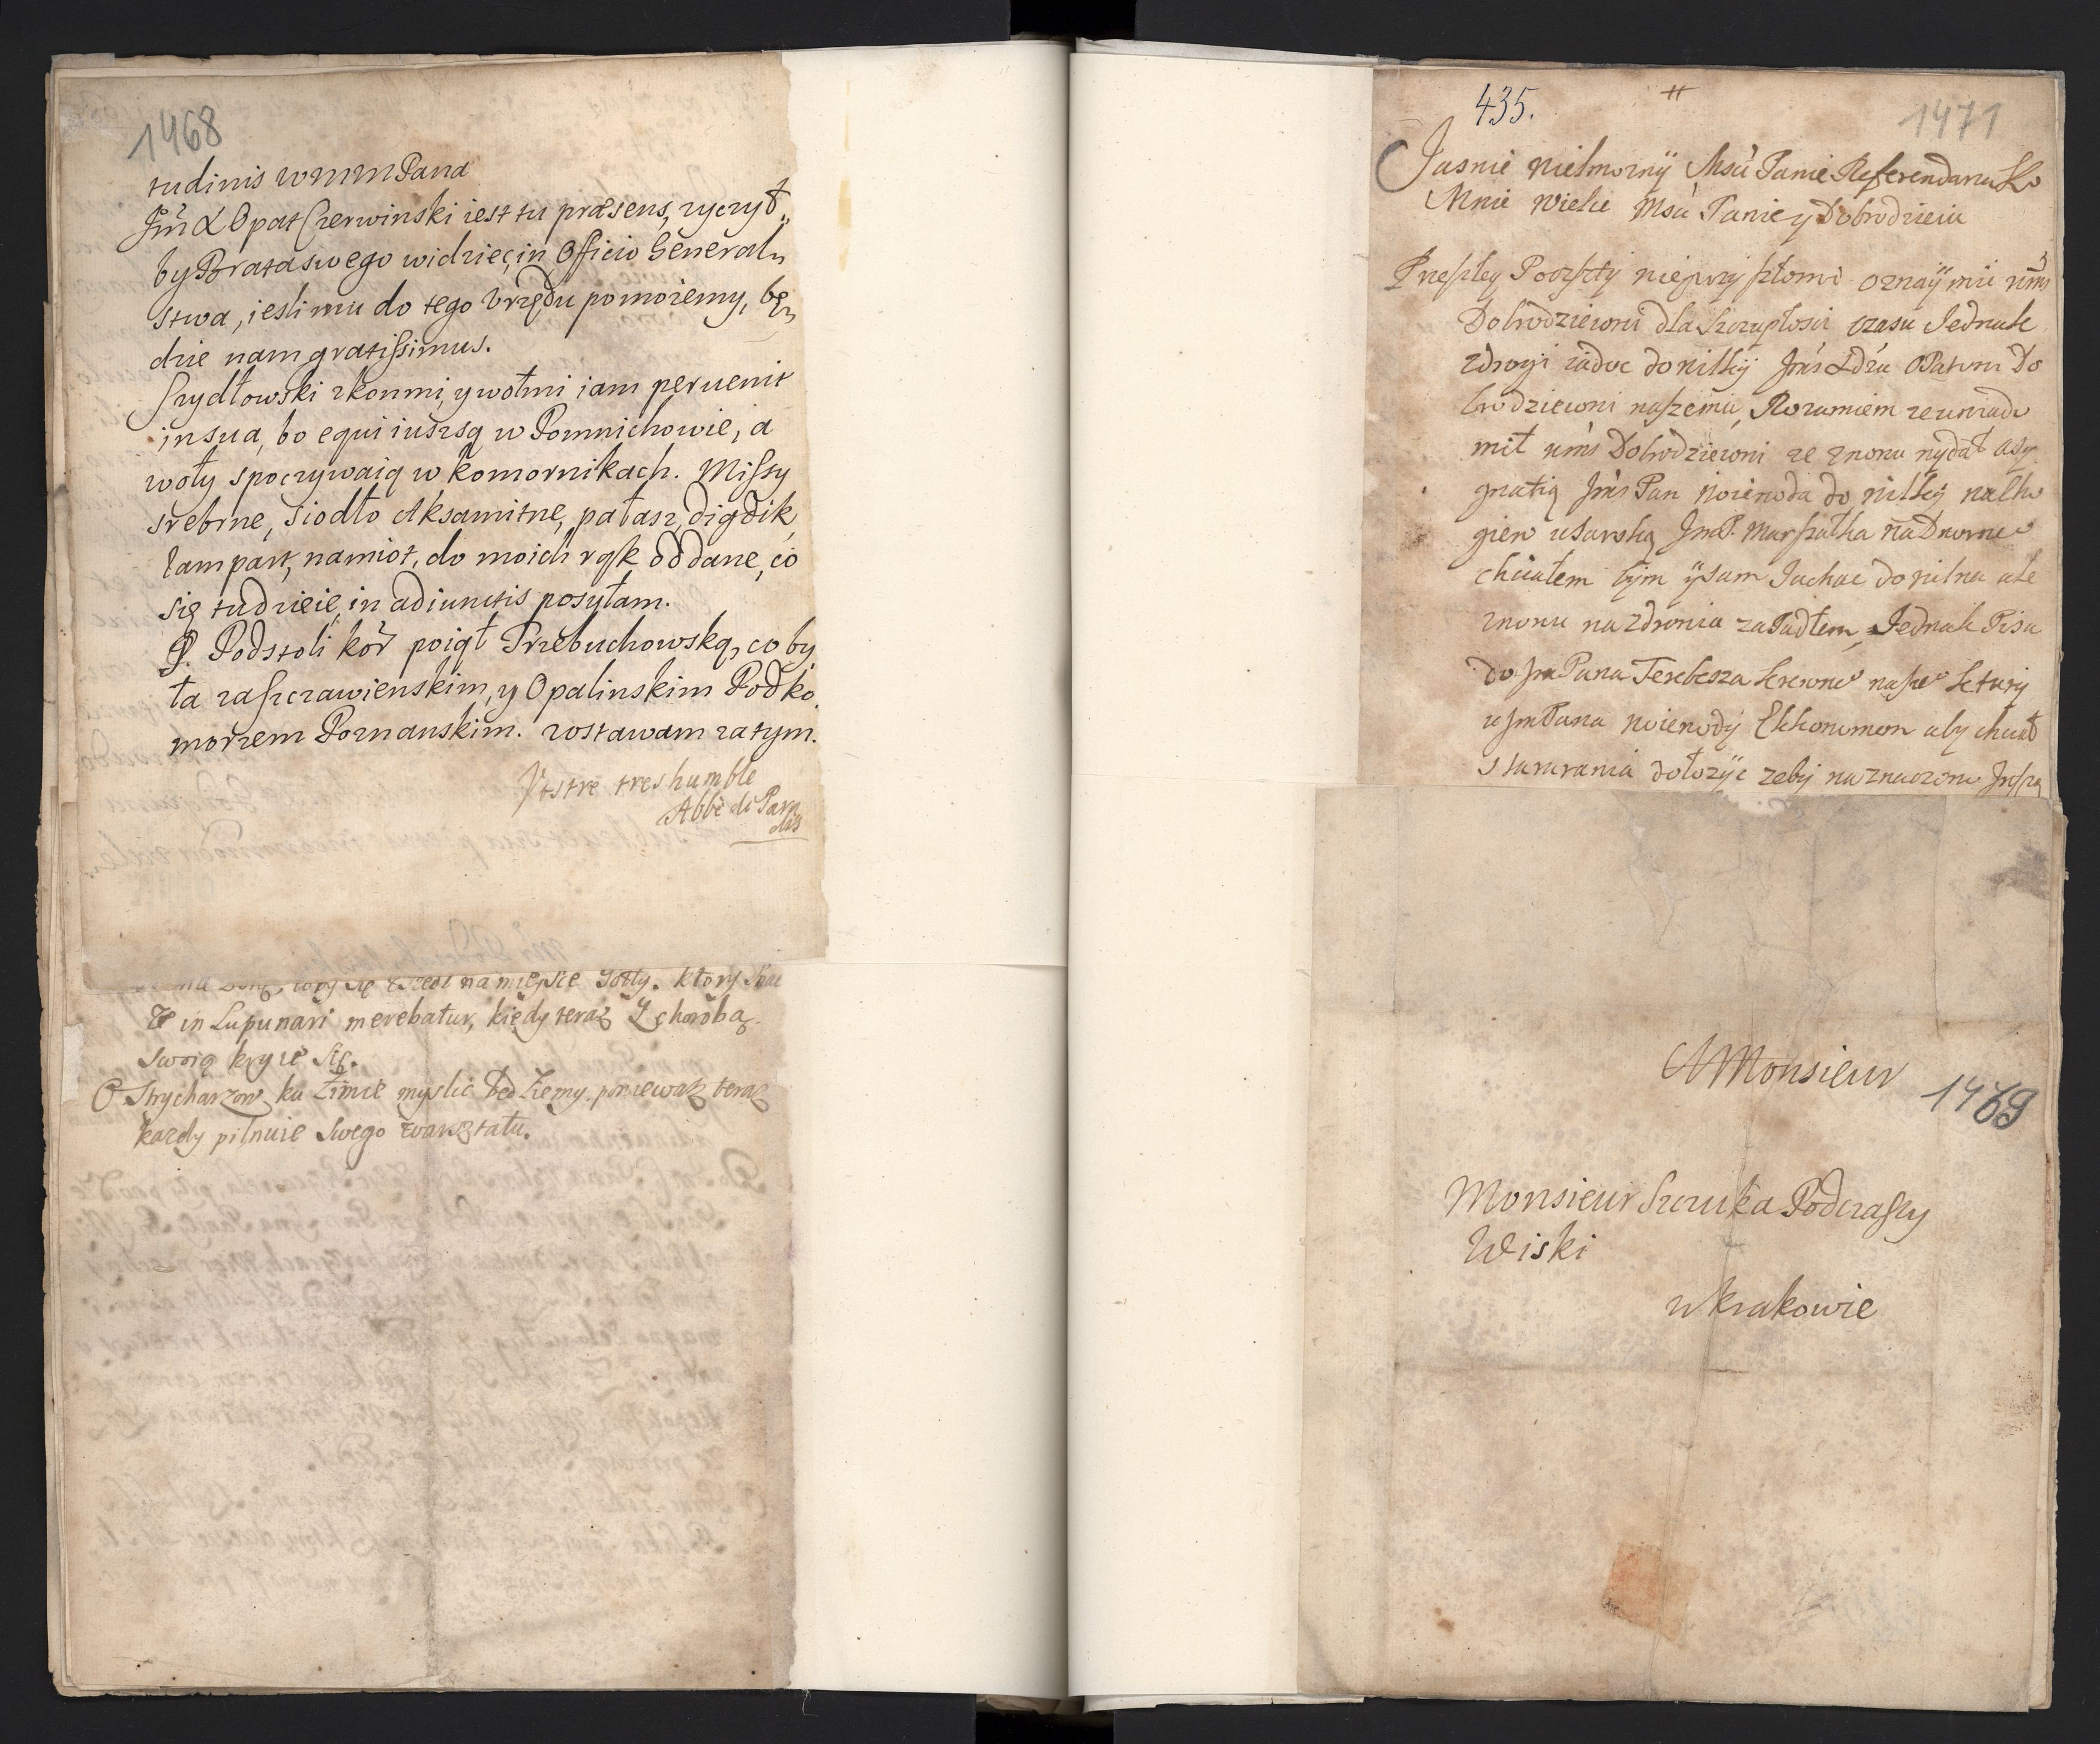 1468
tudinis wmmPana
Jm̃ X Opat Czerwinski iest tu præsens, zyczył
by Brata swego widziec, in Officio Generał„
stwa, iesli mu do tego Vrzędu pomożemy, bę„
dzie nam gratissimus.
Szydłowski zkonmi, y wołmi iam peruenit
in sua, bo equi iusz są w Pomnichowie, a
woły spoczywaią w komornikach. Missy
srebrne, Siodło Aksamitne, pałasz, digdik,
lampart, namiot, do moich rąk oddane, co
się tu dzieie, in adiunctis posyłam.
P. Podstoli kor poiął Przebuchowską, co by
ła za Szczawienskim, y Opalinskim Podko„
morzem Poznanskim. zostawam zatym.
Vostre tres humble
Abbè de Para
dis
na mieysce
in Lupunari merebatur, kiedy teraz Z chorobą
swoią kryie się.
O Strycharzow ku Zimie myslic będziemy, poniewaz teraz
kazdy pilnuie swego warsztatu.
435.
1471
Jasnie Wielmozny Msci Panie Referendarzu Ko
Mnie Wielce Msci Panie y Dobrodzieiu
Przeszłey Poczty nieprzyszłomi oznaymic wms
Dobrodzieiowi dla szczupłosci czasu Jednak
zdrogi iadoc do Wilky Jms Xdzu Opatowi Do
brodzieiowi naszemu, Rozumiem ze uwiado
mił wms Dobrodzieiowi ze znowu wydał asy
gnatią Jms Pan Woiewoda do Wilky na Cho
giew usarską JmP. Marszałka Nadworne°
chciałem bym y sam Jachac do Wilna ale
znowu na zdrowiu zapadłem, Jednak Pisu
do Jm Pana Terebesza krewne° nasze° ktury
u Jm Pana Woiewody Ekkonomem aby chciał
starania dołozyc zeby naznaczono Jnszą
A Monsieur
1469
Monsieur Szczuka Podczaszy
Wiski
w Krakowie